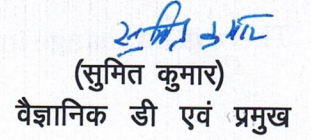 सुमित कुमार
(सुमित कुमार)
वैज्ञानिक डी एवं प्रमुख